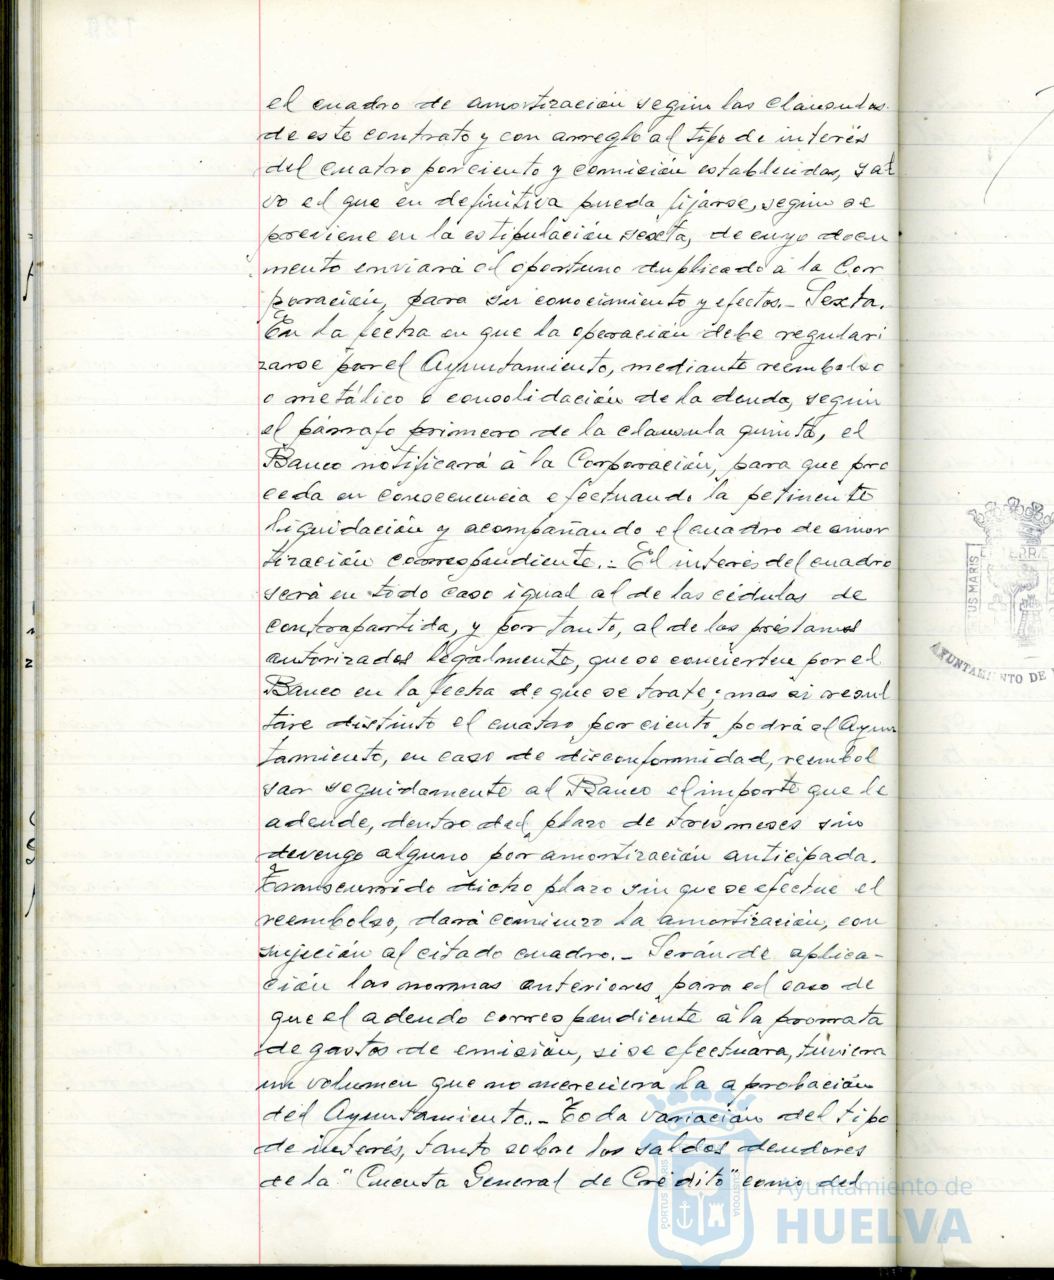 el cuadro de amortización según las cláusulas
de este contrato y con arreglo al tipo de interés
del cuatro por ciento y comisión establecidas, sal
vo el que en definitiva pueda fijarse, según se
previene en la estipulación sexta, de cuyo docu
mento enviará el oportuno duplicado á la Cor
poración, para su conocimiento y efectos.- Sexta.
En la fecha en que la operación debe regulari
zarse por el Ayuntamiento, mediante reembolso
o metálico o consolidación de la deuda, según
el párrafo primero de la clausula quinta, el
Banco notificará á la Corporación, para que pro
ceda en consecuencia efectuando la petinente
liquidación y acompañando el cuadro de amor
tización correspondiente.- El interés del cuadro
será en todo caso igual al de las cédulas de
contrapartida, y por tanto, al de los préstamos
autorizados legalmente, que se concierten por el
Banco en la fecha de que se trate; mas si resul
tare distinto el cuatro por ciento podrá el Ayun
tamiento, en caso de disconformidad, reembol
sar seguidamente al Banco el importe que le
adeude, dentro del plazo de tres meses sin
devengo alguno por amortización anticipada.
Transcurrido dicho plazo sin que se efectue el
reembolso, dará comienzo la amortización, con
sujeción al citado cuadro.- Serán de aplica-
ción las normas anteriores para el caso de
que el adeudo correspondiente á la prorrata
de gastos de emisión, si se efectuara, tuviera
un volumen que no mereciera la aprobación
del Ayuntamiento.- Toda variación del tipo
de interés, tanto sobre los saldos deudores
de la "Cuenta General de Crédito" como del
PORTUS MARIS
CUSTODIA
Ayuntamiento de
HUELVA
TUS MARIS
TERRAE
AYUNTAMIENTO DE